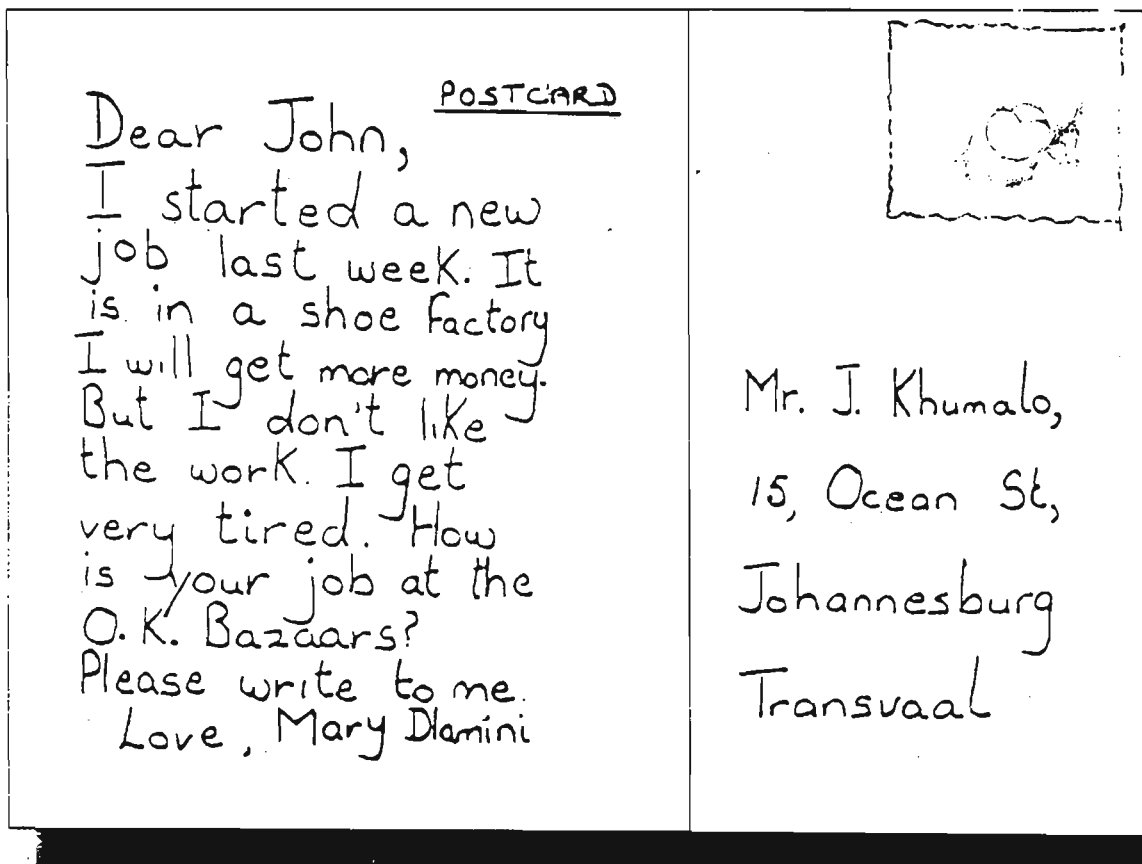 POSTCARD
Dear John,
I started a new
job last week. It
is in a shoe factory
I will get more money.
But I don't like
the work. I get
very tired. How
is your job at the
O.K. Bazaars?
Please write to me.
Love, Mary Dlamini
Mr. J. Khumalo,
15, Ocean St,
Johannesburg
Transvaal